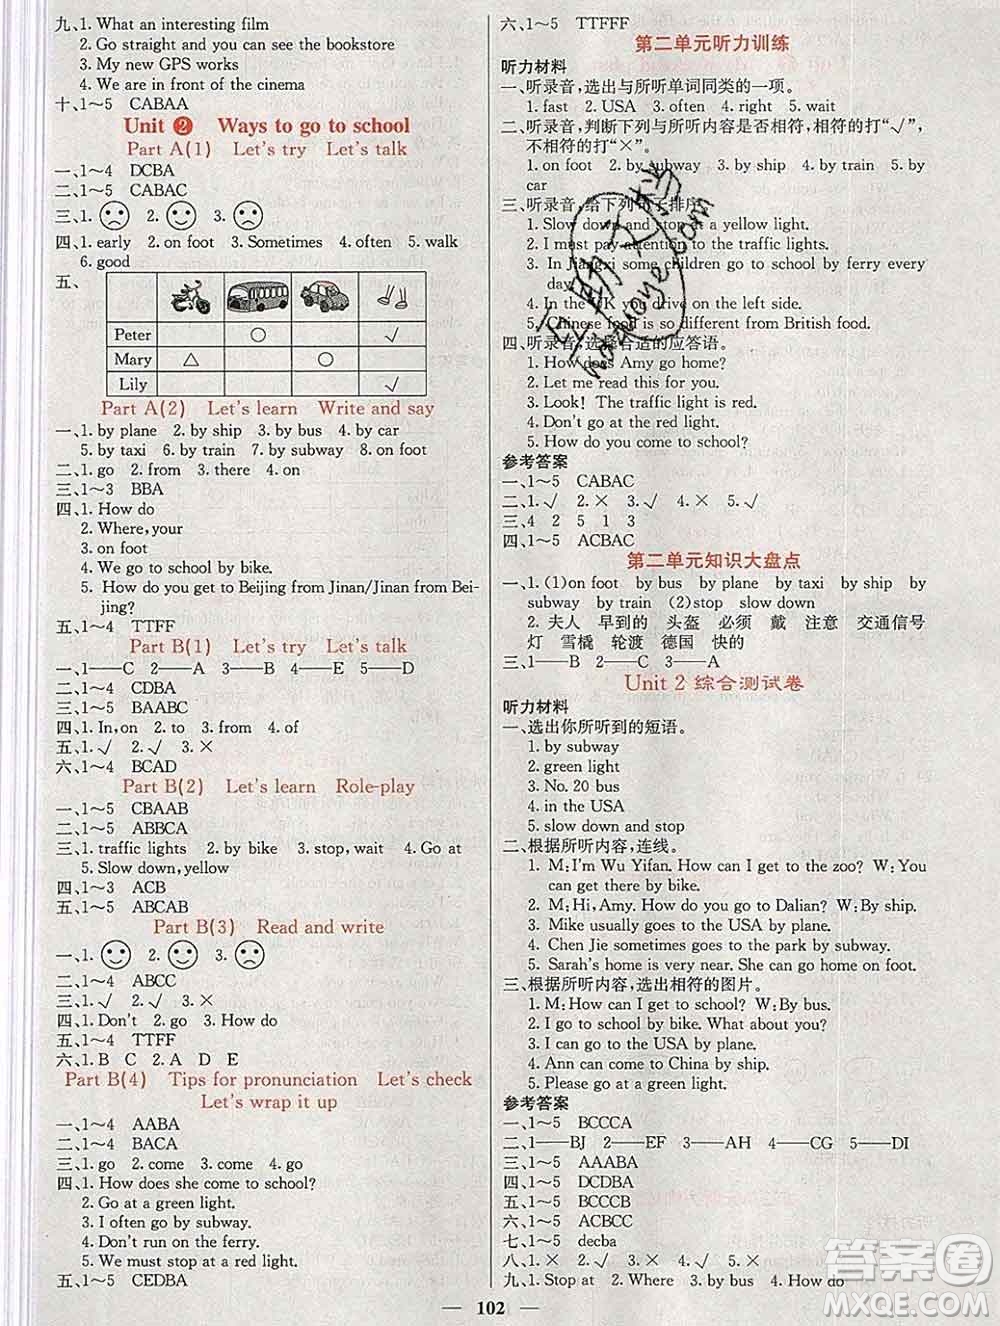 九、1. What an interesting film
2. Go straight and you can see the bookstore
3. My new GPS works
4. We are in front of the cinema
十、1～5 CABAA
Unit 2 Ways to go to school
Part A(1) Let's try Let's talk
一、1～4 DCBA
二、1～5 CABAC
三、1. 2. 3.
四、1. early 2. on foot 3. Sometimes 4. often 5. walk
6. good
五、
Peter ○ √
Mary △ ○
Lily √
Part A(2) Let's learn Write and say
一、1. by plane 2. by ship 3. by bus 4. by car
5. by taxi 6. by train 7. by subway 8. on foot
二、1. go 2. from 3. there 4. on
三、1～3 BBA
四、1. How do
2. Where, your
3. on foot
4. We go to school by bike.
5. How do you get to Beijing from Jinan/Jinan from Bei-
jing?
五、1～4 TTFF
Part B(1) Let's try Let's talk
一、1——C 2——A 3——B 4——E 5——D
二、1～4 CDBA
三、1～5 BAABC
四、1. In, on 2. to 3. from 4. of
五、1. √ 2. √ 3. ×
六、1～4 BCAD
Part B(2) Let's learn Role-play
一、1～5 CBAAB
二、1～5 ABBCA
三、1. traffic lights 2. by bike 3. stop, wait 4. Go at
5. Slow down, yellow
四、1～3 ACB
五、1～5 ABCAB
Part B(3) Read and write
一、1. 2. 3.
二、1～4 ABCC
三、1. √ 2. √ 3. ×
四、1. Don't 2. go 3. How do
五、1～4 TTFF
六、1. B C 2. A D E
Part B(4) Tips for pronunciation Let's check
Let's wrap it up
一、1～4 AABA
二、1～4 BACA
三、1. go 2. come 3. come 4. go
四、1. How does she come to school?
2. Go at a green light.
3. I often go by subway.
4. Don't run on the ferry.
5. We must stop at a red light.
五、1～5 CEDBA
六、1～5 TTFFF
第二单元听力训练
听力材料
一、听录音，选出与所听单词同类的一项。
1. fast 2. USA 3. often 4. right 5. wait
二、听录音，判断下列与所听内容是否相符，相符的打“√”，
不相符的打“×”。
1. on foot 2. by subway 3. by ship 4. by train 5. by
car
三、听录音，给下列句子排序。
1. Slow down and stop at a yellow light.
2. I must pay attention to the traffic lights.
3. In Jiangxi some children go to school by ferry every
day.
4. In the UK you drive on the left side.
5. Chinese food is so different from British food.
四、听录音，选择合适的应答语。
1. How does Amy go home?
2. Let me read this for you.
3. Look! The traffic light is red.
4. Don't go at the red light.
5. How do you come to school?
参考答案
一、1～5 CABAC
二、1. √ 2. × 3. √ 4. × 5. √
三、4 2 5 1 3
四、1～5 ACBAC
第二单元知识大盘点
一、1. (1)on foot by bus by plane by taxi by ship by
subway by train (2)stop slow down
2. 夫人 早到的 头盔 必须 戴 注意 交通信号
灯 雪橇 轮渡 德国 快的
三、1——B 2——C 3——A
Unit 2 综合测试卷
听力材料
一、选出你所听到的短语。
1. by subway
2. green light
3. No. 20 bus
4. in the USA
5. slow down and stop
二、根据所听内容，连线。
1. M:I'm Wu Yifan. How can I get to the zoo? W:You
can get there by bike.
2. M:Hi, Amy. How do you go to Dalian? W:By ship.
3. Mike usually goes to the USA by plane.
4. Chen Jie sometimes goes to the park by subway.
5. Sarah's home is very near. She can go home on foot.
三、根据所听内容，选出相符的图片。
1. M:How can I get to school? W:By bus.
2. I go to school by bike. What about you?
3. I can go to the USA by plane.
4. Ann can come to China by ship.
5. Please go at a green light.
参考答案
一、1～5 BCCCA
二、1——BJ 2——EF 3——AH 4——CG 5——DI
三、1～5 AAABA
四、1～5 DCDBA
五、1～5 BCCCB
六、1～5 ACBCC
七、1～5 decba
八、1. × 2. √ 3. √ 4. × 5. √
九、1. Stop at 2. Where 3. by bus 4. How do
— 102 —
答案圈
MXQE.COM